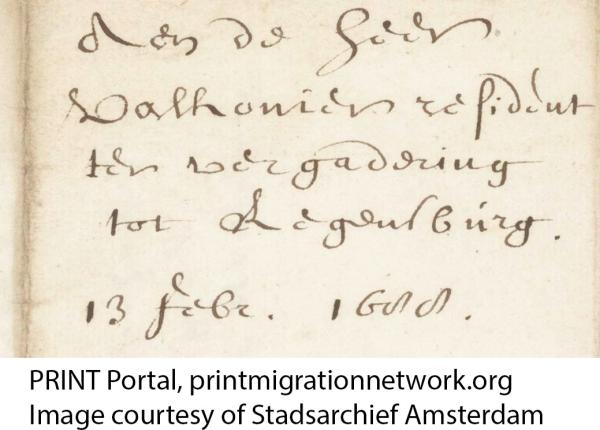 Aen de Heer
Valkenier resident
ter vergadering
tot Regensburg.
13 febr. 1688.
PRINT Portal, printmigrationnetwork.org
Image courtesy of Stadsarchief Amsterdam